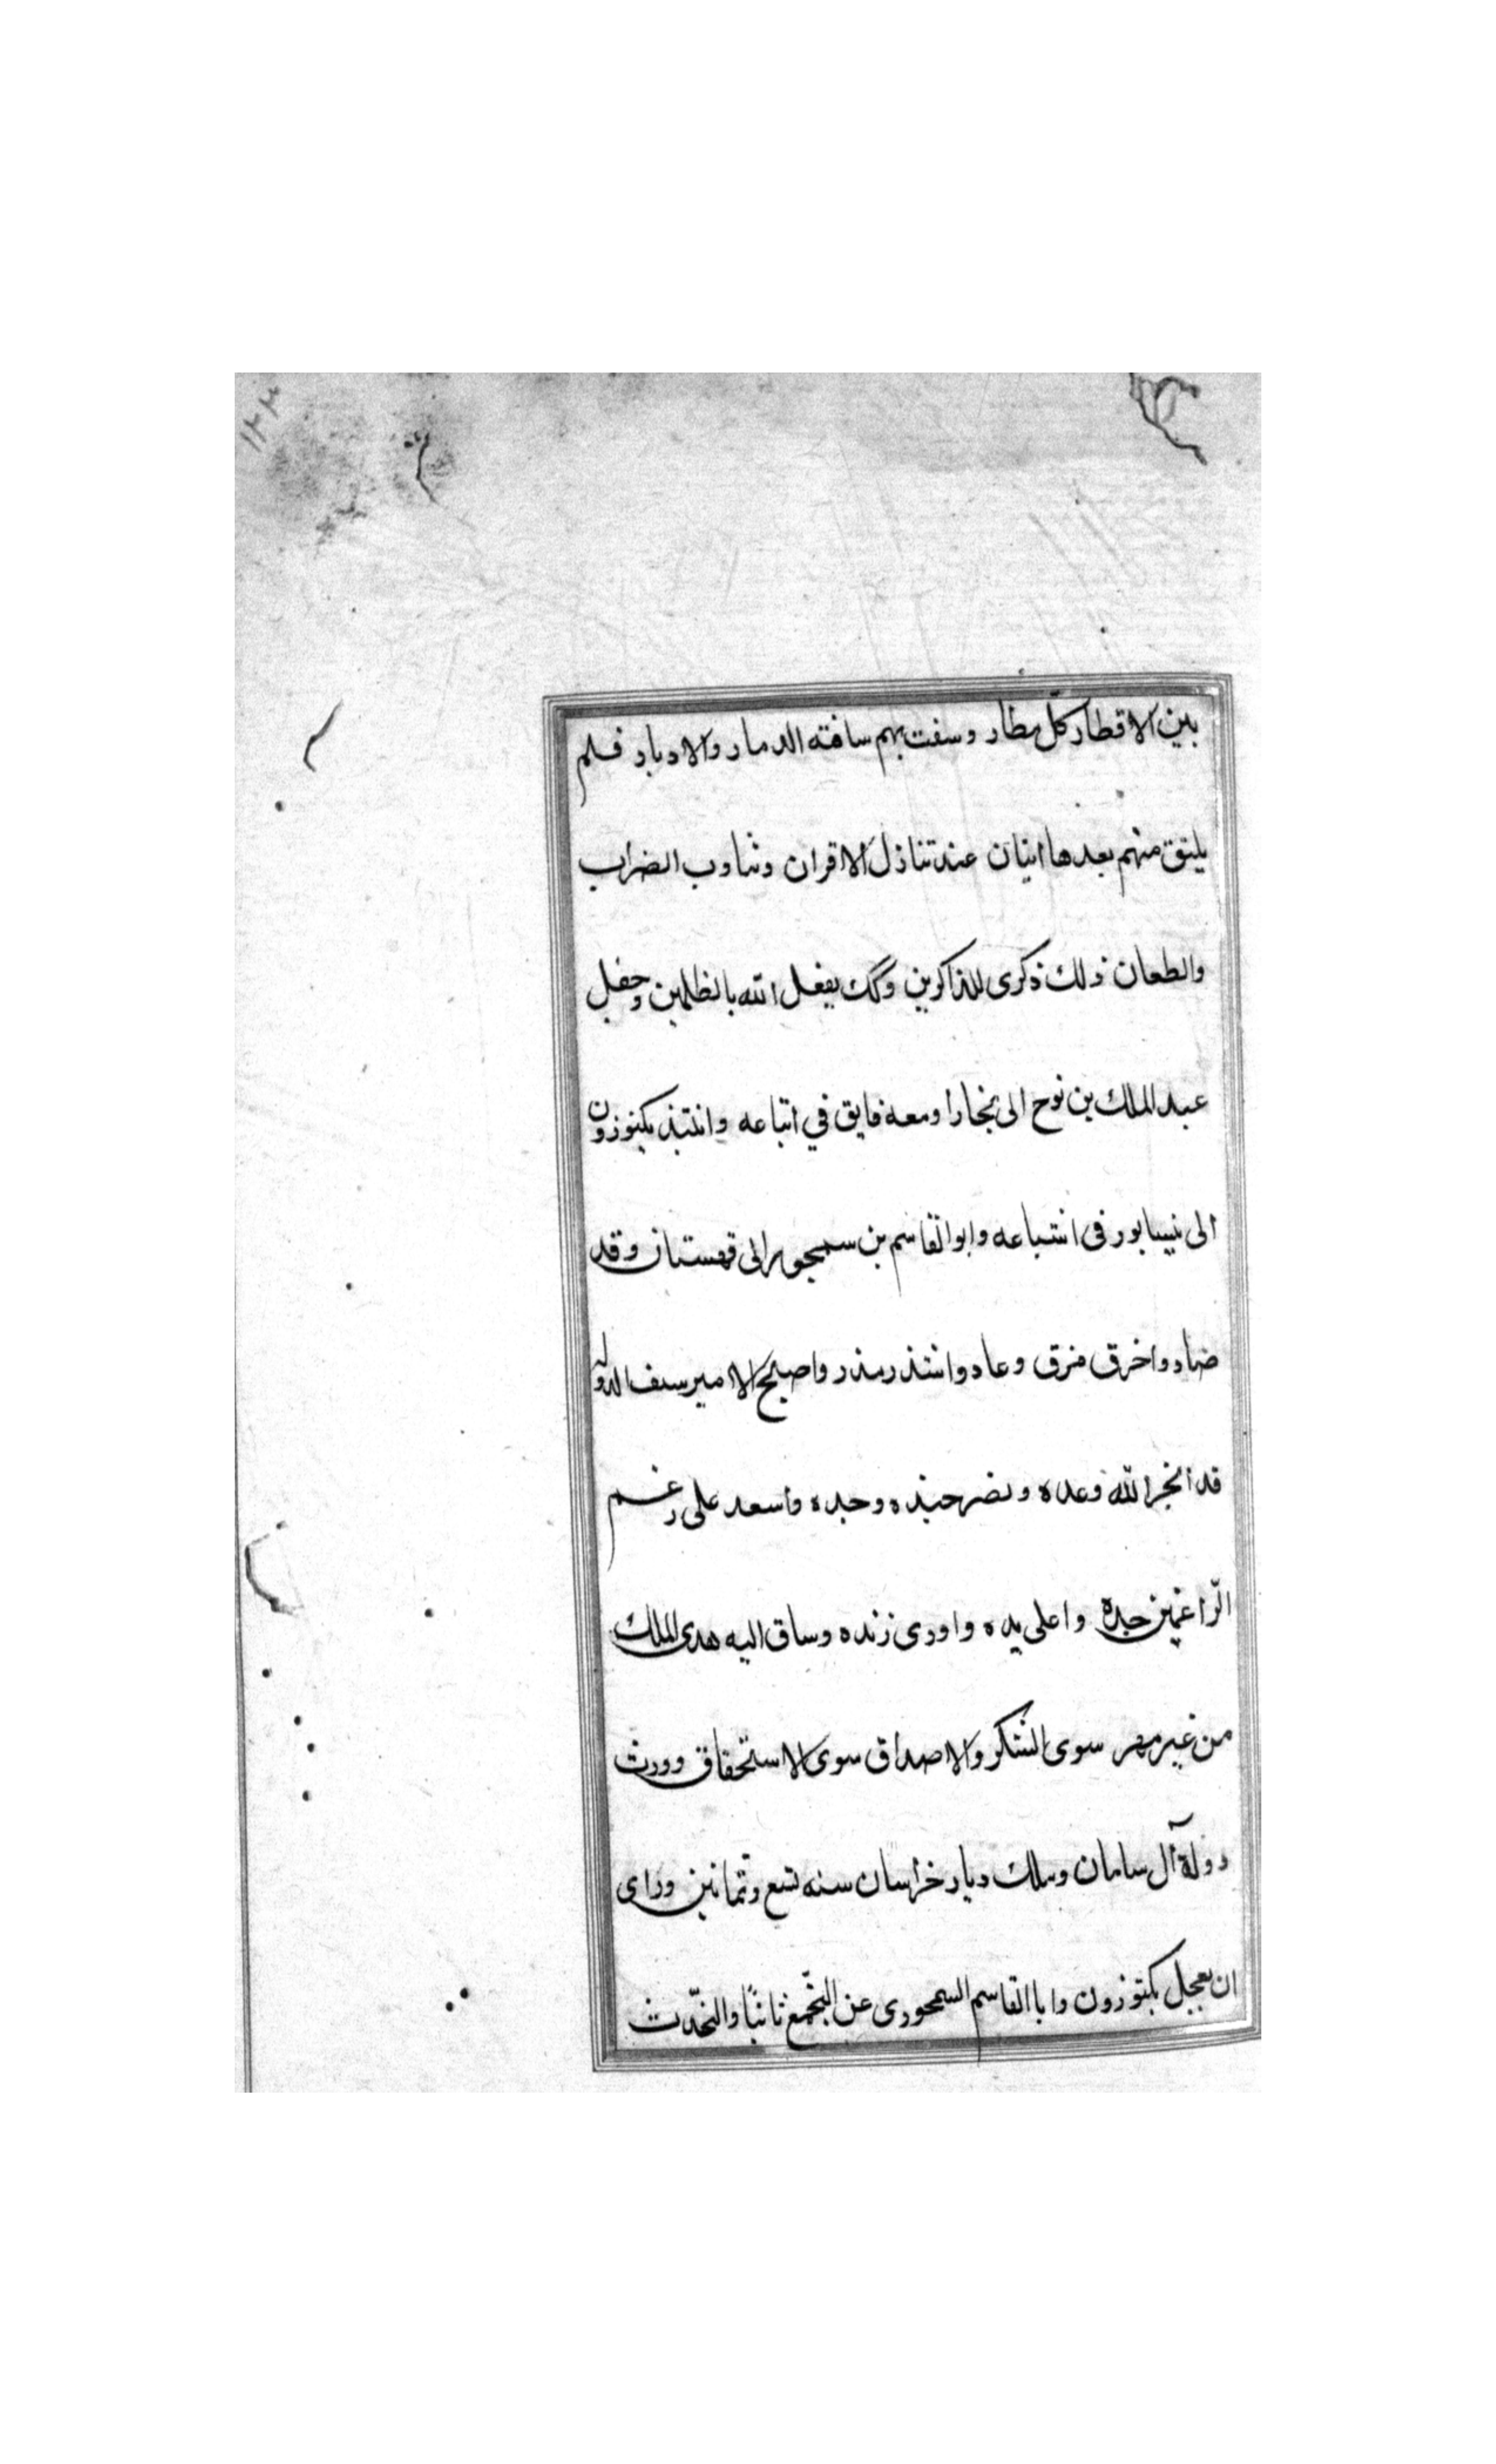 ١٢٣
بين الاقطار كلّ مطار وسفت بهم سافته الدمار والادبار فلم
يلتق منهم بعدها اثنان عند تنازل الاقران وتناوب الضراب
والطعان ذلك ذكرى للذاكرين وكك يفعل الله بالظلمين وجفل
عبد الملك بن نوح الى بخارا ومعه فايق في اتباعه وانتبذ بكتوزون
الى نيسابور فى اشياعه وابو القاسم بن سمجور الى قهستان وقد
ضاد واخرق مزق وعاد وانتذر مذر واصبح الامير سيف الدوله
قد انجز الله وعده ونصر جنده وحده واسعد على رغم
الرّاغمين جده واعلى يده واورى زنده وساق اليه هدى الملك
من غير مهر سوى الشكر والاصداق سوى الاستحقاق وورث
دولة آل سامان وملك ديار خراسان سنه تسع وثمانين وراى
ان يعجل بكتوزون وابا القاسم السمجورى عن التجّمع ثانيًا والتحّدث